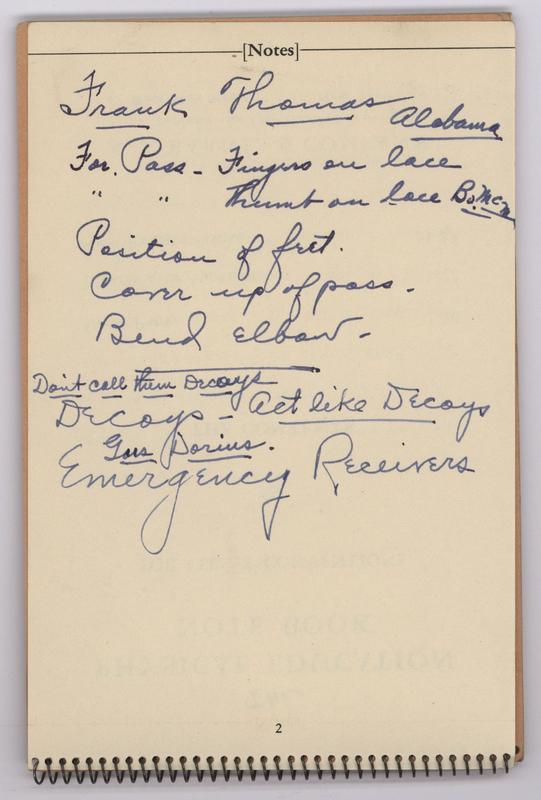 [Notes]
Frank Thomas
Alabama
For. Pass - Fingers on lace
" " Thumb on lace Bo. McM
Position of feet.
Cover up of pass.
Bend elbow -
Don't call them Decoys
Decoys - Act like Decoys
Gus Dorius.
Emergency Receivers
2